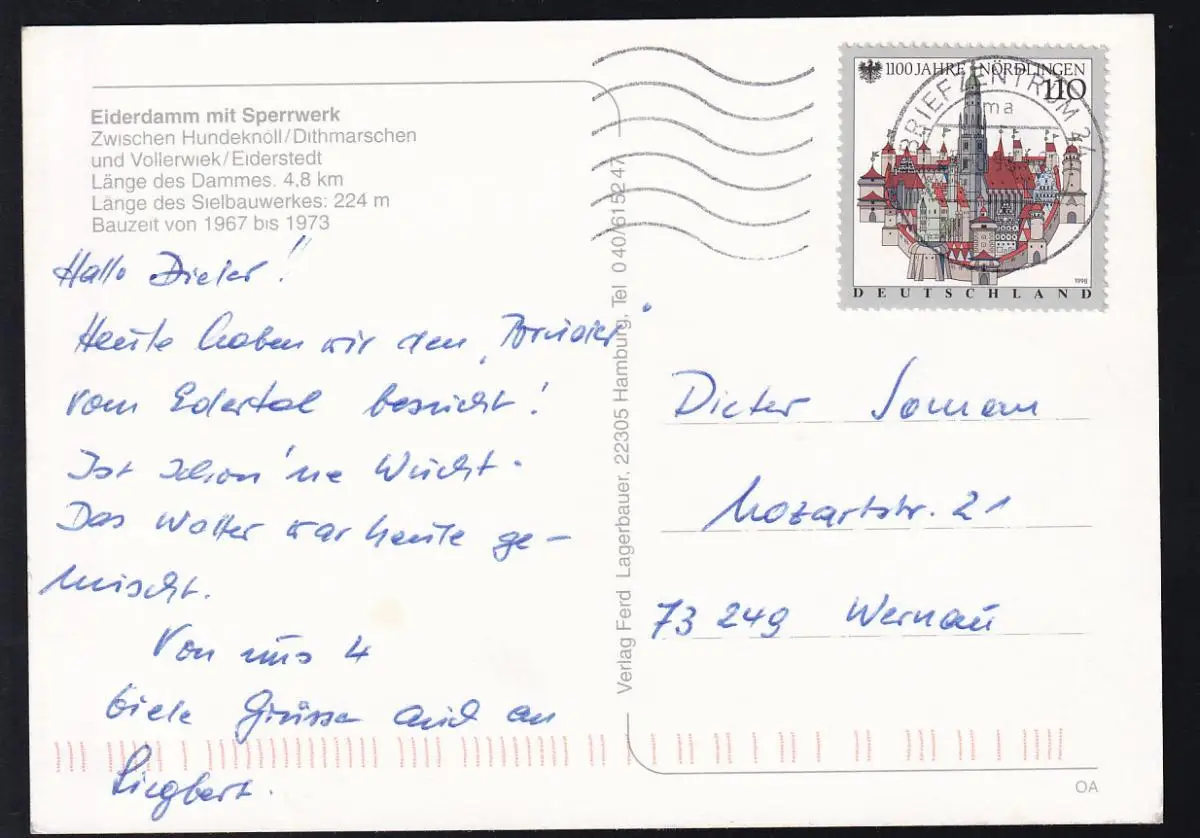 Eiderdamm mit Sperrwerk
Zwischen Hundeknöll/Dithmarschen
und Vollerwiek/Eiderstedt
Länge des Dammes. 4,8 km
Länge des Sielbauwerkes: 224 m
Bauzeit von 1967 bis 1973
Hallo Dieter!
Heute haben wir den
vom Edertal besucht!
Ist schon 'ne Wucht.
Das Wetter war heute ge-
mischt.
Von uns 4
viele Grüsse auch an
Siegbert.
Verlag Ferd Lagerbauer, 22305 Hamburg, Tel 040/615247
1100 JAHRE NÖRDLINGEN
110
BRIEFZENTRUM 24
ma
1998
DEUTSCHLAND
Dieter
Mozartstr. 21
73249 Wernau
OA